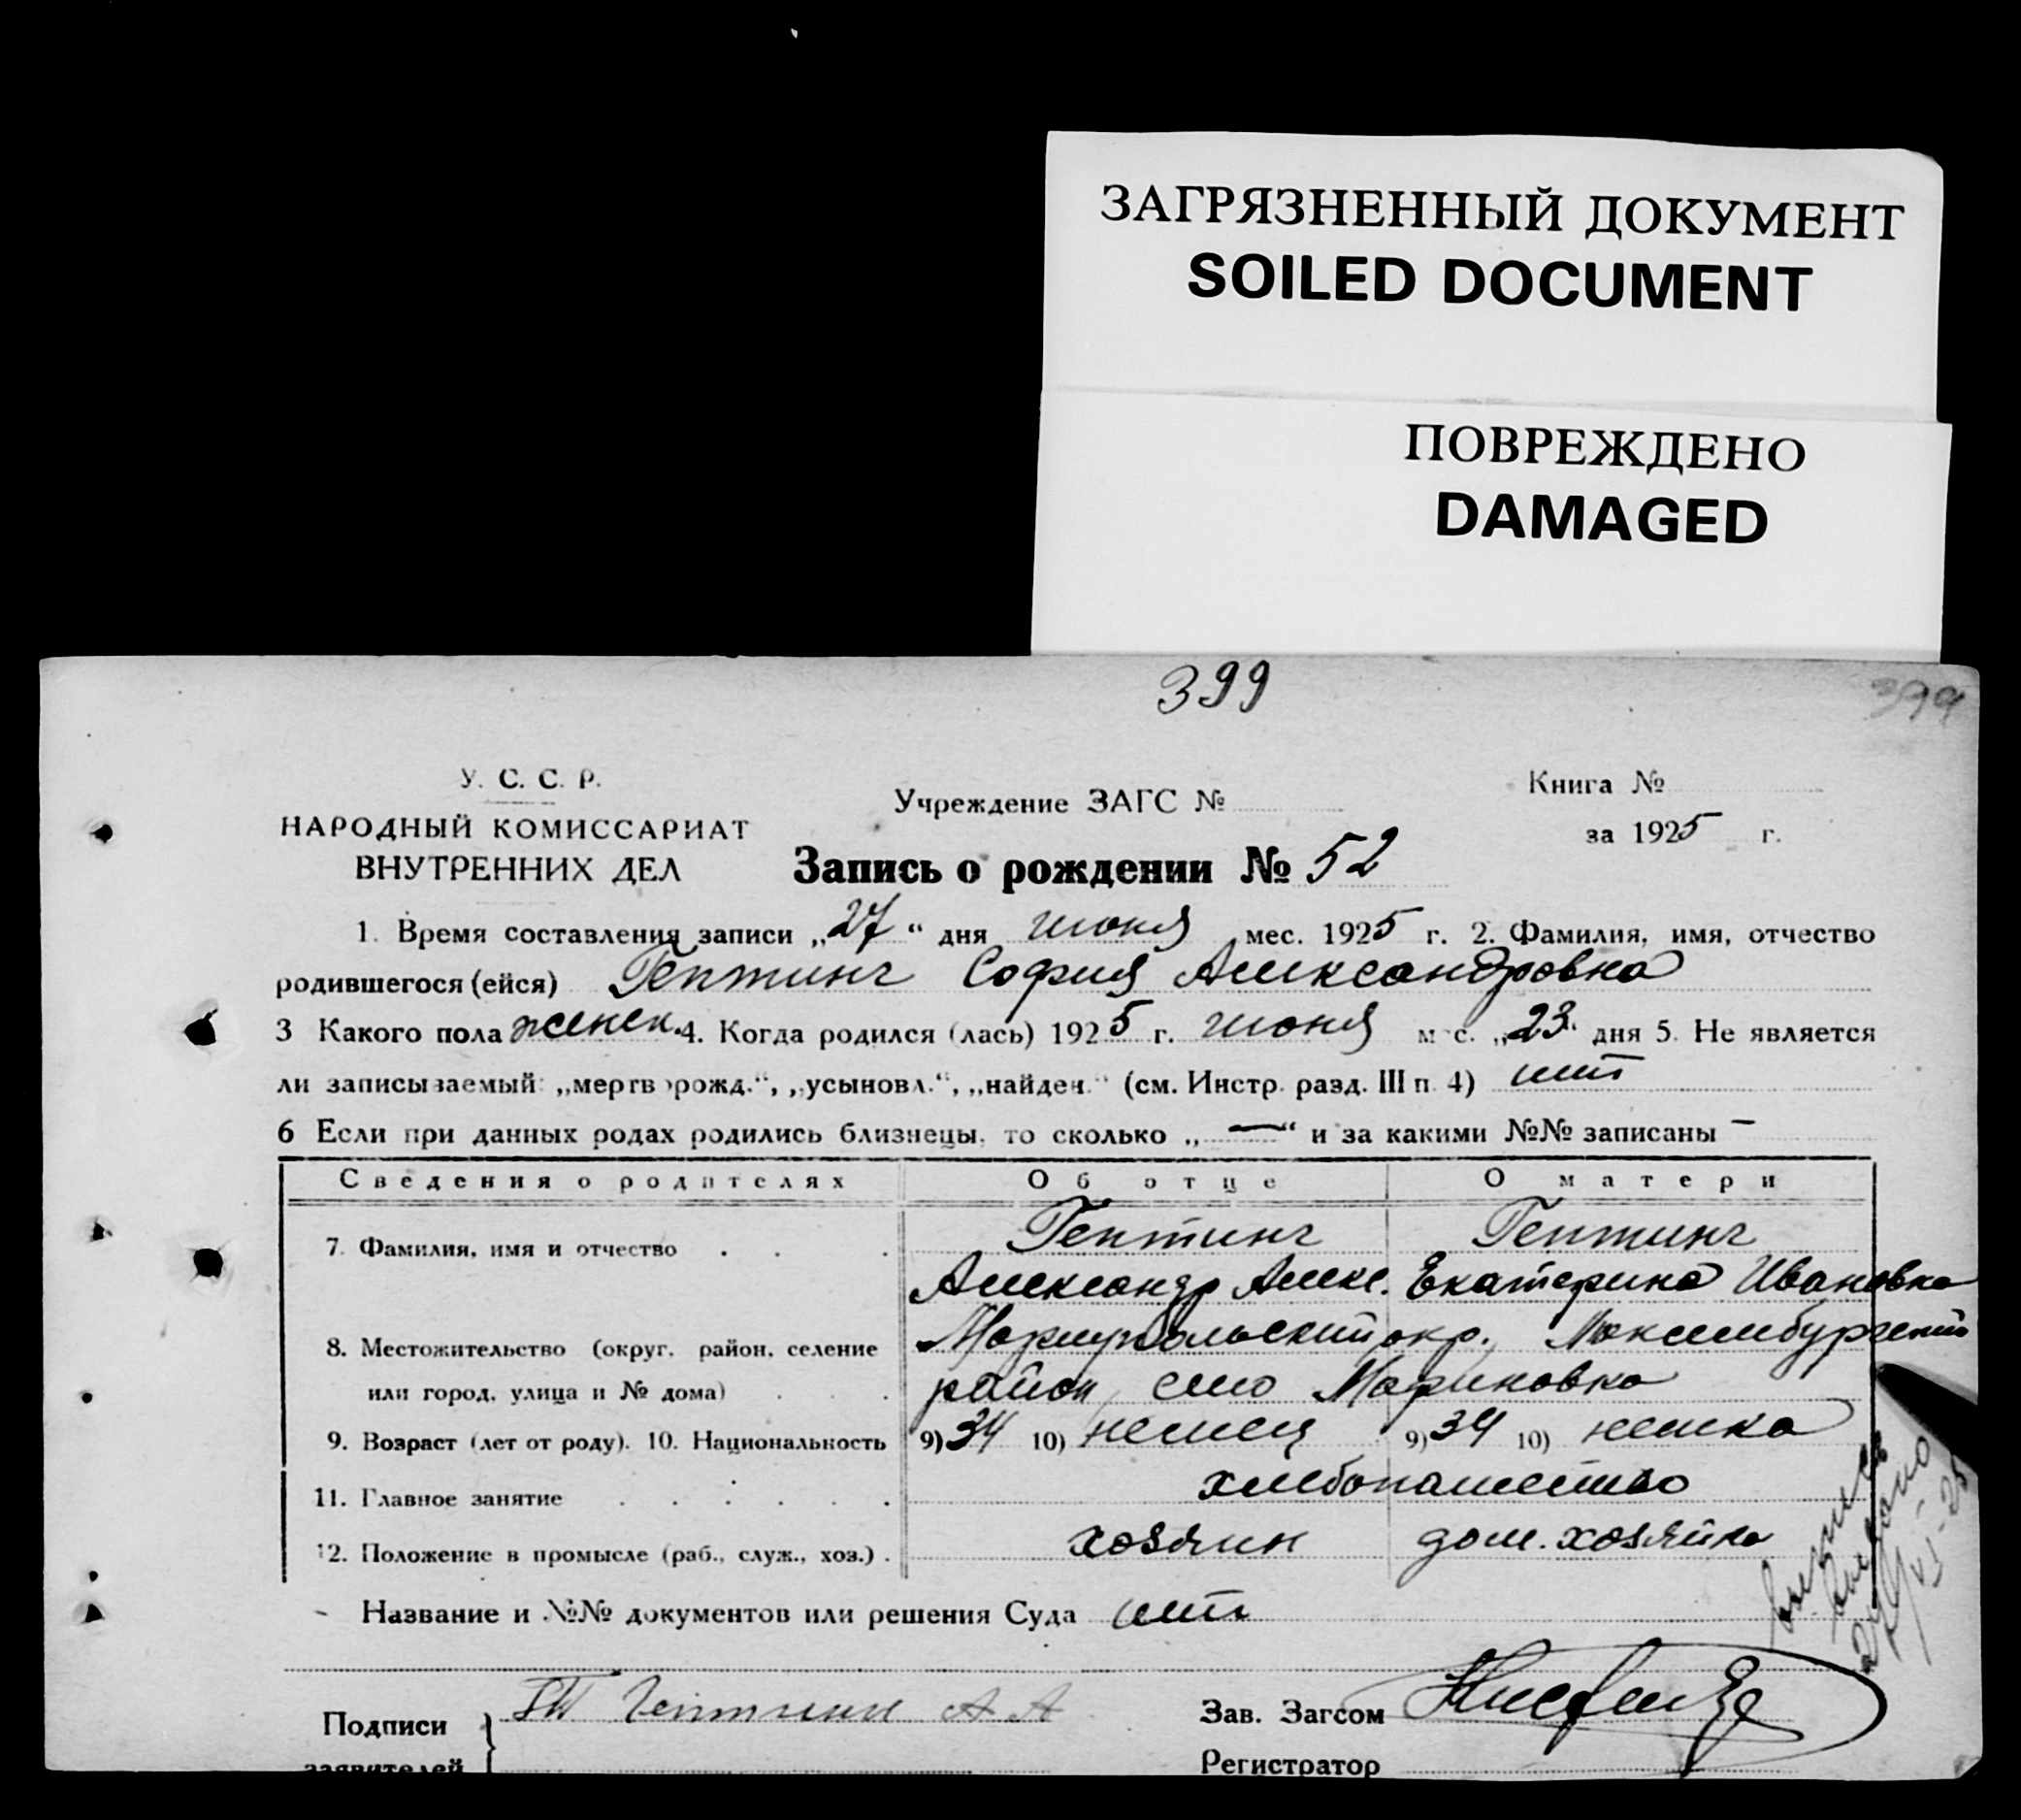 ЗАГРЯЗНЕННЫЙ ДОКУМЕНТ
SOILED DOCUMENT
ПОВРЕЖДЕНО
DAMAGED
399
399
У. С. С. Р.
НАРОДНЫЙ КОМИССАРИАТ
ВНУТРЕННИХ ДЕЛ
Учреждение ЗАГС №
Книга №
за 1925 г.
Запись о рождении № 52
1. Время составления записи „27“ дня июня мес. 1925 г. 2. Фамилия, имя, отчество
родившегося (ейся) Гептинг София Александровна
3 Какого пола женск. 4. Когда родился (лась) 1925 г. июня мес. „23“ дня 5. Не является
ли записываемый: „мертворожд.“, „усыновл.“, „найден.“ (см. Инстр. разд. III п. 4) нет
6 Если при данных родах родились близнецы, то сколько „—“ и за какими №№ записаны —
Сведения о родителях Об отце О матери
7. Фамилия, имя и отчество . . . Гептинг Гептинг
Александр Алекс. Екатерина Ивановна
8. Местожительство (округ, район, селение Мариупольский окр., Люксембургский
или город, улица и № дома) . . . район, село Мариновка
9. Возраст (лет от роду). 10. Национальность 9) 34 10) немец 9) 34 10) немка
11. Главное занятие . . . . . . хлебопашество
12. Положение в промысле (раб., служ., хоз.) . хозяин дом. хозяйка
- Название и №№ документов или решения Суда нет
выпись
выдано
Подписи
заявителей
Гептинг А А
Зав. Загсом
Регистратор